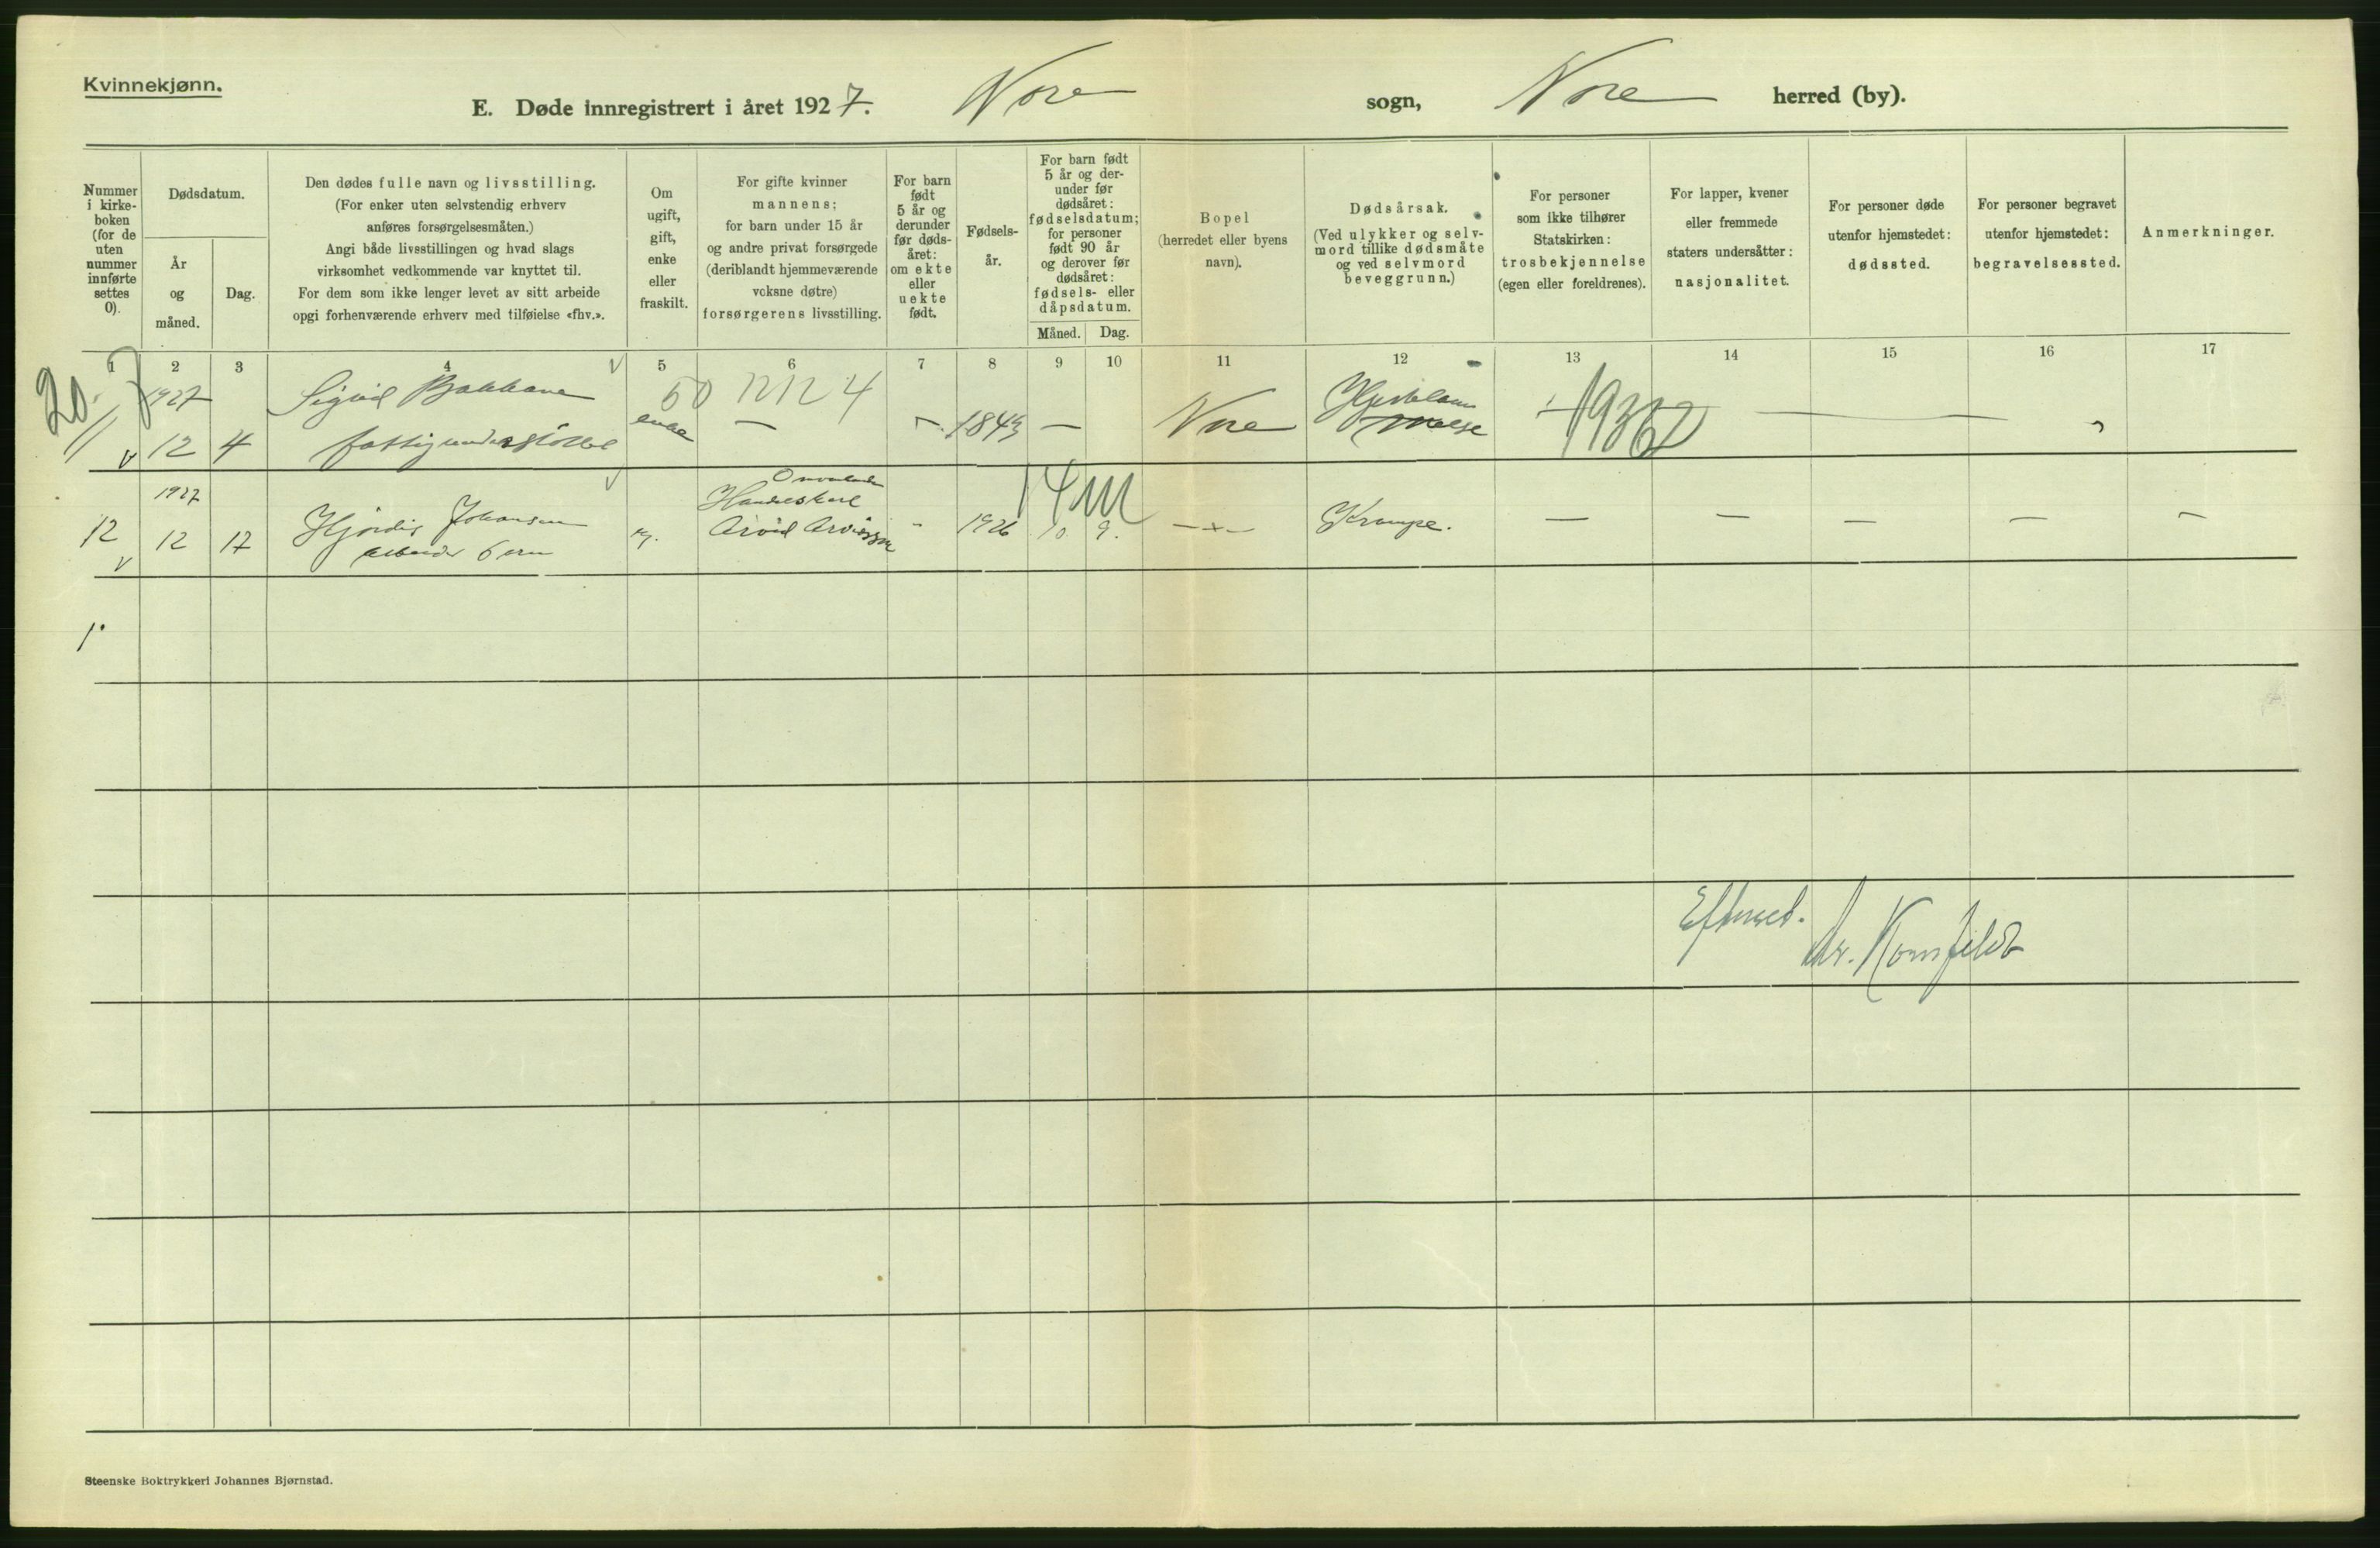 Kvinnekjønn.
E. Døde innregistrert i året 1927. Nore sogn, Nore herred (by).
Nummer i kirkeboken (for de uten nummer innførte settes 0).
Dødsdatum.
År og måned.
Dag.
Den dødes fulle navn og livsstilling.
(For enker uten selvstendig erhverv
anføres forsørgelsesmåten.)
Angi både livsstillingen og hvad slags
virksomhet vedkommende var knyttet til.
For dem som ikke lenger levet av sitt arbeide
opgi forhenværende erhverv med tilføielse «fhv.».
Om
ugift,
gift,
enke
eller
fraskilt.
For gifte kvinner
mannens;
for barn under 15 år
og andre privat forsørgede
(deriblandt hjemmeværende
voksne døtre)
forsørgerens livsstilling.
For barn
født
5 år og
derunder
før døds-
året:
om ekte
eller
uekte
født.
Fødsels-
år.
For barn født
5 år og der-
under før
dødsåret:
fødselsdatum;
for personer
født 90 år
og derover før
dødsåret:
fødsels- eller
dåpsdatum.
Måned. Dag.
Bopel
(herredet eller byens
navn).
Dødsårsak.
(Ved ulykker og selv-
mord tillike dødsmåte
og ved selvmord
beveggrunn.)
For personer
som ikke tilhører
Statskirken:
trosbekjennelse
(egen eller foreldrenes).
For lapper, kvener
eller fremmede
staters undersåtter:
nasjonalitet.
For personer døde
utenfor hjemstedet:
dødssted.
For personer begravet
utenfor hjemstedet:
begravelsessted.
Anmerkninger.
1 2 3 4 5 6 7 8 9 10 11 12 13 14 15 16 17
20. 7
1927 Sigrid Bakkane 50 12124
11 12 4 fattigunderstøttet enke — 1843 — Nore — —
1927
12 12 17 Hjørdis Johansen Arvid 1926 10 9. —x— Krampe. — — — — —
Dr. Komfeldt
Steenske Boktrykkeri Johannes Bjørnstad.